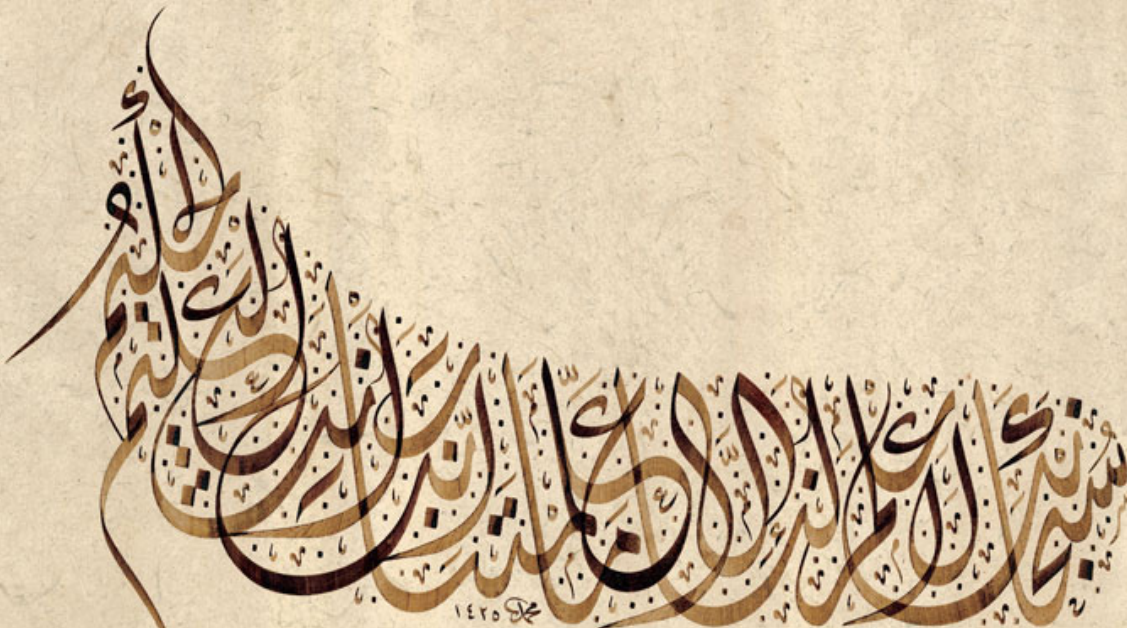 سبحانك لا علم لنا إلا ما علمتنا إنك أنت العليم الحكيم
محمد ١٤٢٥